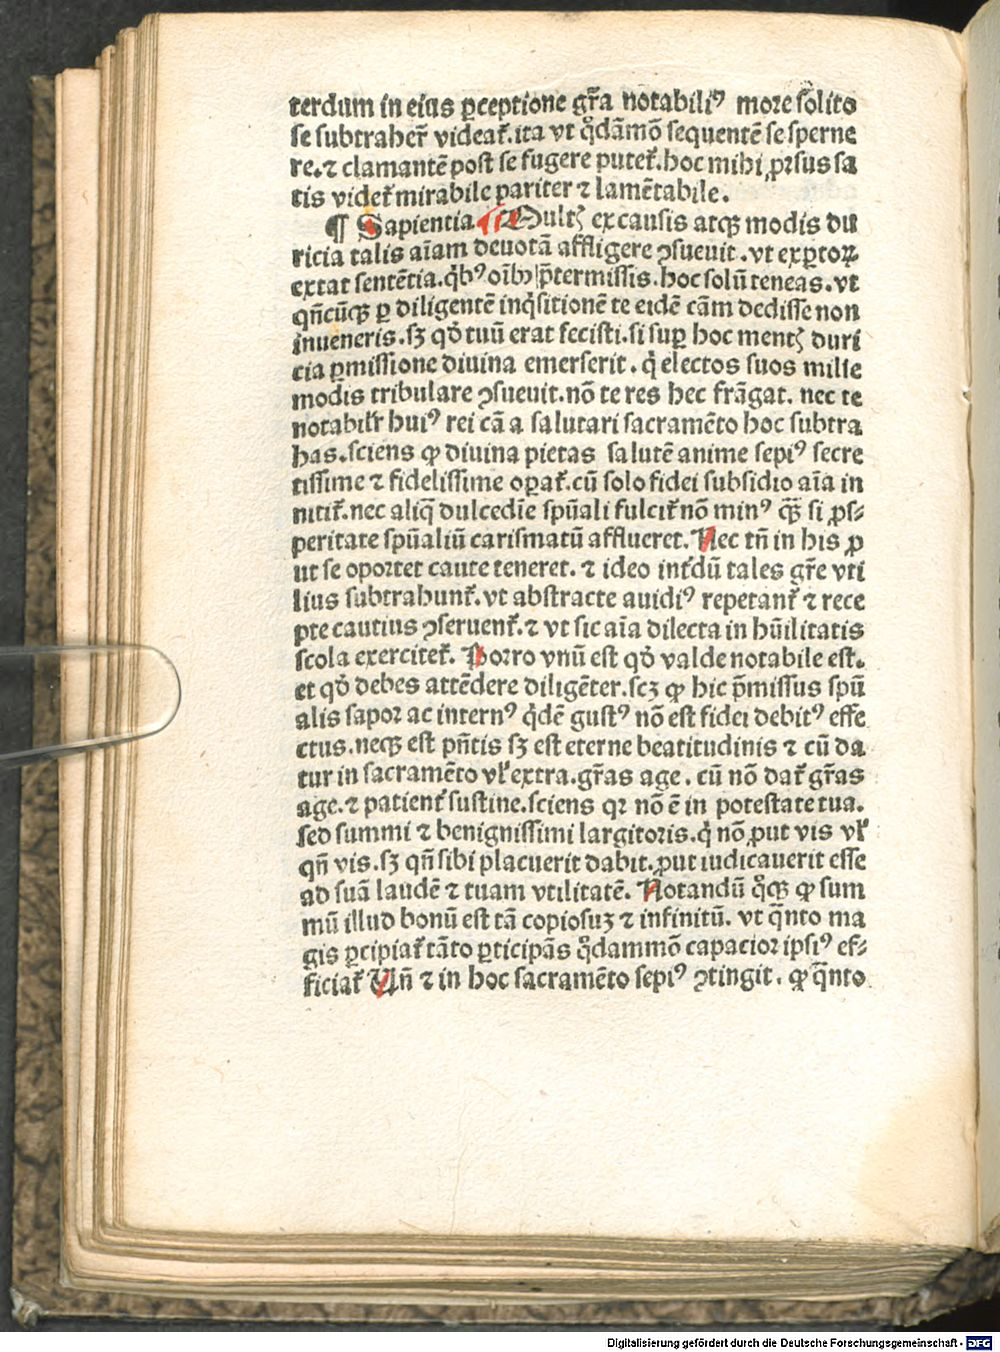 terdum in eius ꝑceptione gr̃a notabiliꝰ more solito
se subtraher̃ videat᷑.ita vt qͦdãmõ sequentẽ se sperne
re.⁊ clamantẽ post se fugere putet᷑.hoc mihi ꝓrsus sa
tis videt᷑ mirabile pariter ⁊ lamẽtabile.
¶ Sapientia. ¶ Multꝭ ex causis atqꝫ modis du
ricia talis aĩam deuotã affligere ꝯsueuit.vt exꝑtoꝝ
extat sentẽtia.qͥbꝰ oĩbꝰ p̃termissis.hoc solũ teneas.vt
qñcũqꝫ ꝑ diligentẽ inqͥsitionẽ te eidẽ cãm dedisse non
inueneris.sꝫ qd̛ tuũ erat fecisti.si suꝑ hoc mentꝭ duri
cia ꝑmissione diuina emerserit.qͥ electos suos mille
modis tribulare ꝯsueuit.nõ te res hec frãgat. nec te
notabilr̃ huiꝰ rei cã a salutari sacramẽto hoc subtra
has.sciens ꝙ diuina pietas salutẽ anime sepiꝰ secre
tissime ⁊ fidelissime oꝑat᷑.cũ solo fidei subsidio aĩa in
nitit᷑.nec aliqͣ dulcedĩe spũali fulcit᷑ nõ minꝰ qͣꝫ si ꝓs⸗
peritate spũaliũ carismatũ afflueret. Nec tñ in his ꝓ
ut se oportet caute teneret.⁊ ideo int᷑dũ tales gr̃e vti
lius subtrahunt᷑.vt abstracte auidiꝰ repetant᷑ ⁊ rece
pte cautius ꝯseruent᷑.⁊ vt sic aĩa dilecta in hũilitatis
scola exercitet᷑. Porro vnũ est qd̛ valde notabile est.
et qd̛ debes attẽdere diligẽter.scꝫ ꝙ hic p̃missus spũ
alis sapor ac internꝰ qͥdẽ gustꝰ nõ est fidei debitꝰ effe
ctus.neqꝫ est pñtis sꝫ est eterne beatitudinis ⁊ cũ da
tur in sacramẽto vl̛ extra.gr̃as age.cũ nõ dat᷑ gr̃as
age.⁊ patient᷑ sustine.sciens qꝛ nõ ẽ in potestate tua.
sed summi ⁊ benignissimi largitoris.qͥ nõ ꝓut vis vl̛
qñ vis.sꝫ qñ sibi placuerit dabit.ꝓut iudicauerit esse
ad suã laudẽ ⁊ tuam vtilitatẽ. Notandũ qͦqꝫ ꝙ sum
mũ illud bonũ est tã copiosuꝫ ⁊ infinitũ. vt qͣnto ma
gis ꝑcipiat᷑ tãto ꝑticipãs qͦdammõ capacior ipsiꝰ ef⸗
ficiat᷑ Uñ ⁊ in hoc sacramẽto sepiꝰ ꝯtingit. ꝙ qͣnto
Digitalisierung gefördert durch die Deutsche Forschungsgemeinschaft - DFG